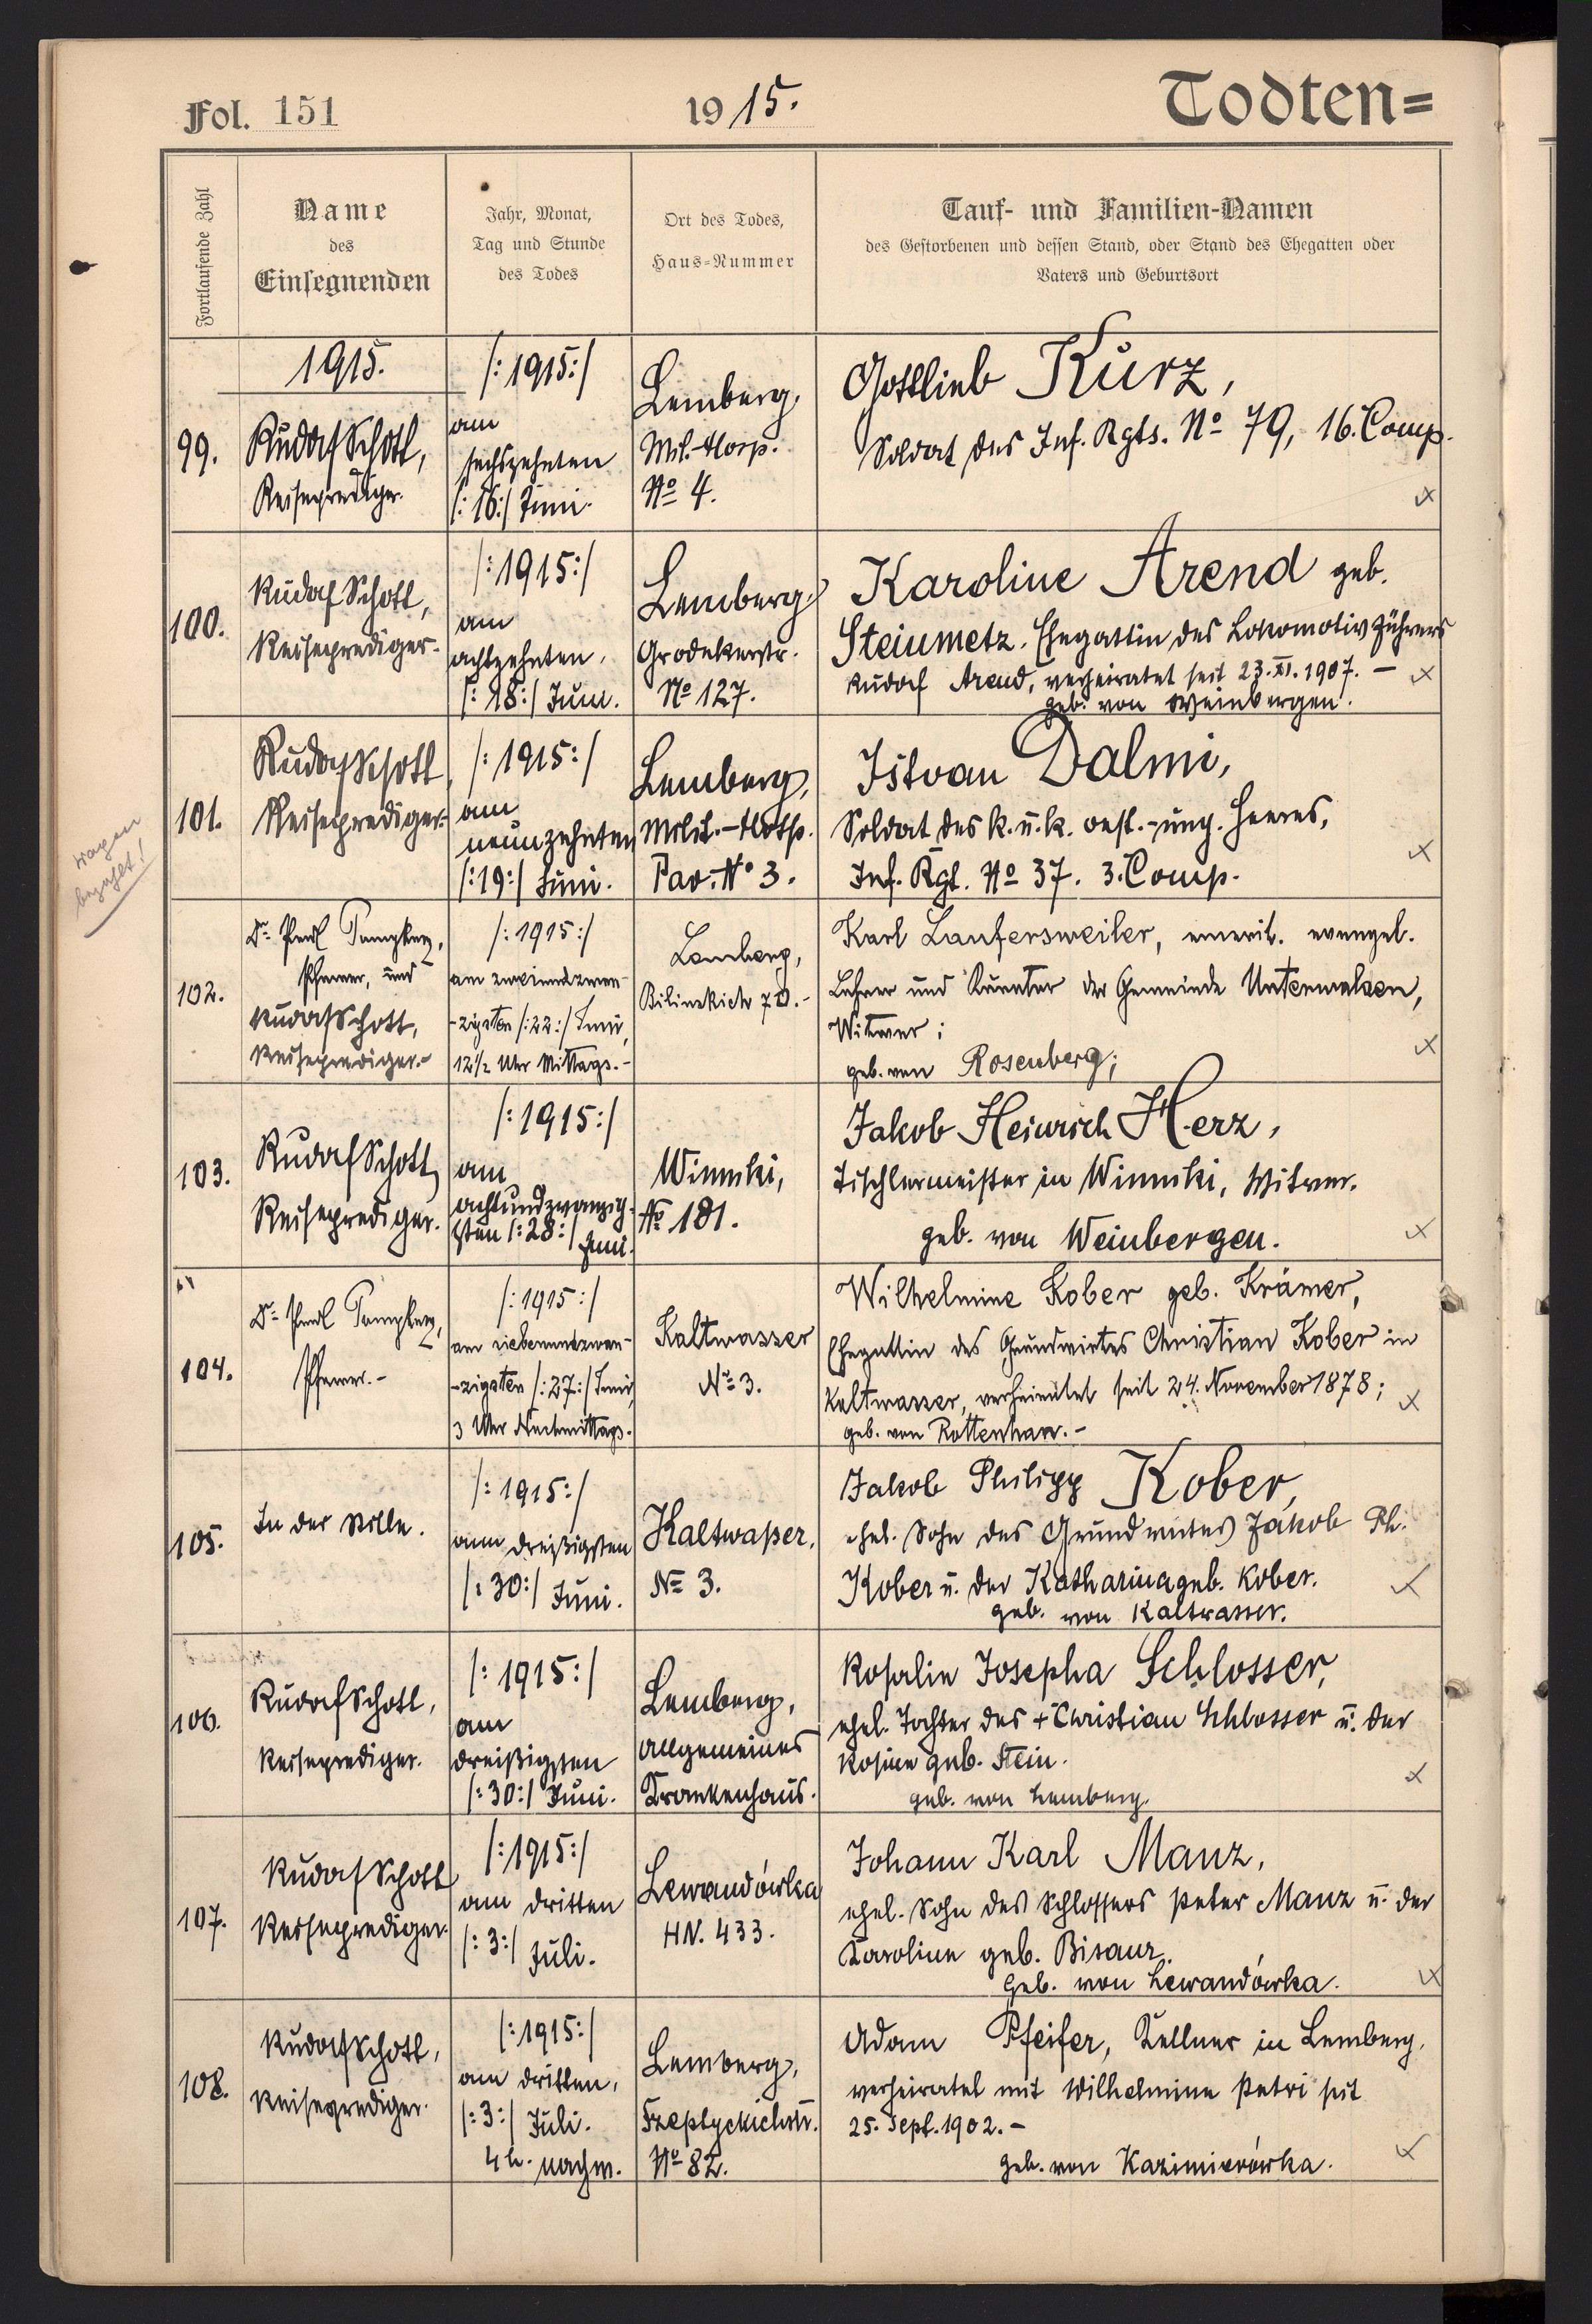 Fol. 151
1915.
Todten=
Fortlaufende Zahl
Name
des
Einsegnenden
Jahr, Monat,
Tag und Stunde
des Todes
Ort des Todes,
Haus-Nummer
Tauf- und Familien-Namen
des Gestorbenen und dessen Stand, oder Stand des Ehegatten oder
Vaters und Geburtsort
1915.
99.
Rudolf Schott,
Reiseprediger.
/:1915:/
am
sechszehnten
/:16:/ Juni.
Lemberg,
Mil.-Hosp.
No 4.
Gottlieb Kurz,
Soldat des Inf. Rgts. No 79, 16. Comp.
100.
Rudolf Schott,
Reiseprediger.
/:1915:/
am
achtzehnten,
/:18:/ Juni.
Lemberg,
Grodekerstr.
No 127.
Karoline Arend geb.
Steinmetz. Ehegattin des Lokomotivführers
Rudolf Arend, verheiratet seit 23.XI.1907. –
geb. von Weinbergen.
101.
Rudolf Schott,
Reiseprediger.
/:1915:/
am
neunzehnten
/:19:/ Juni.
Lemberg,
Milit.-Hosp.
Pav. No 3.
Istvan Dalmi,
Soldat des k. u. k. oest.-ung. Heeres,
Inf. Rgt. No 37. 3. Comp.
bezahlt!
102.
Dr. Paul
Pfarrer, und
Rudolf Schott,
Reiseprediger.-
/:1915:/
am zweiundzwan-
-zigsten /:22:/ Juni,
12½ Uhr Mittags.-
Lemberg,
Karl Laufersweiler, emerit. evangel.
Lehrer und Kurator der Gemeinde Unterwalden,
Witwer;
geb. von Rosenberg;
103.
Rudolf Schott,
Reiseprediger.
/:1915:/
am
achtundzwanzig-
sten /:28:/ Juni.
Winniki,
No 181.
Jakob Heinrich Herz,
Tischlermeister in Winniki, Witwer.
geb. von Weinbergen.
104.
Dr. Paul
Pfarrer.-
/:1915:/
am siebenundzwan-
-zigsten /:27:/ Juni,
3 Uhr Nachmittags.
Kaltwasser
No 3.
Wilhelmine Kober geb. Krämer,
Ehegattin des Grundwirtes Christian Kober in
Kaltwasser, verheiratet seit 24. November 1878;
geb. von Rottenhan.-
105.
In der Stille.
/:1915:/
am dreißigsten
/:30:/ Juni.
Kaltwaßer,
No 3.
Jakob Philipp Kober,
ehel. Sohn des Grundwirtes Jakob Ph.
Kober u. der Katharina geb. Kober.
geb. von Kaltwasser.
106.
Rudolf Schott,
Reiseprediger.
/:1915:/
am
dreißigsten
/:30:/ Juni.
Lemberg,
Allgemeines
Krankenhaus.
Rosalie Josepha Schlosser,
ehel. Tochter des + Christian Schlosser u. der
Rosine geb. Stein.
geb. von Lemberg.
107.
Rudolf Schott
Reiseprediger.
/:1915:/
am dritten
/:3:/ Juli.
Lewandówka
HN. 433.
Johann Karl Manz,
ehel. Sohn des Schlossers Peter Manz u. der
Karoline geb. Bisanz.
geb. von Lewandówka.
108.
Rudolf Schott,
Reiseprediger.
/:1915:/
am dritten,
/:3:/ Juli.
4 h. nachm.
Lemberg,
No 82.
Adam Pfeifer, Kellner in Lemberg,
verheiratet mit Wilhelmine Petri seit
25. Sept. 1902.-
geb. von Kazimierówka.